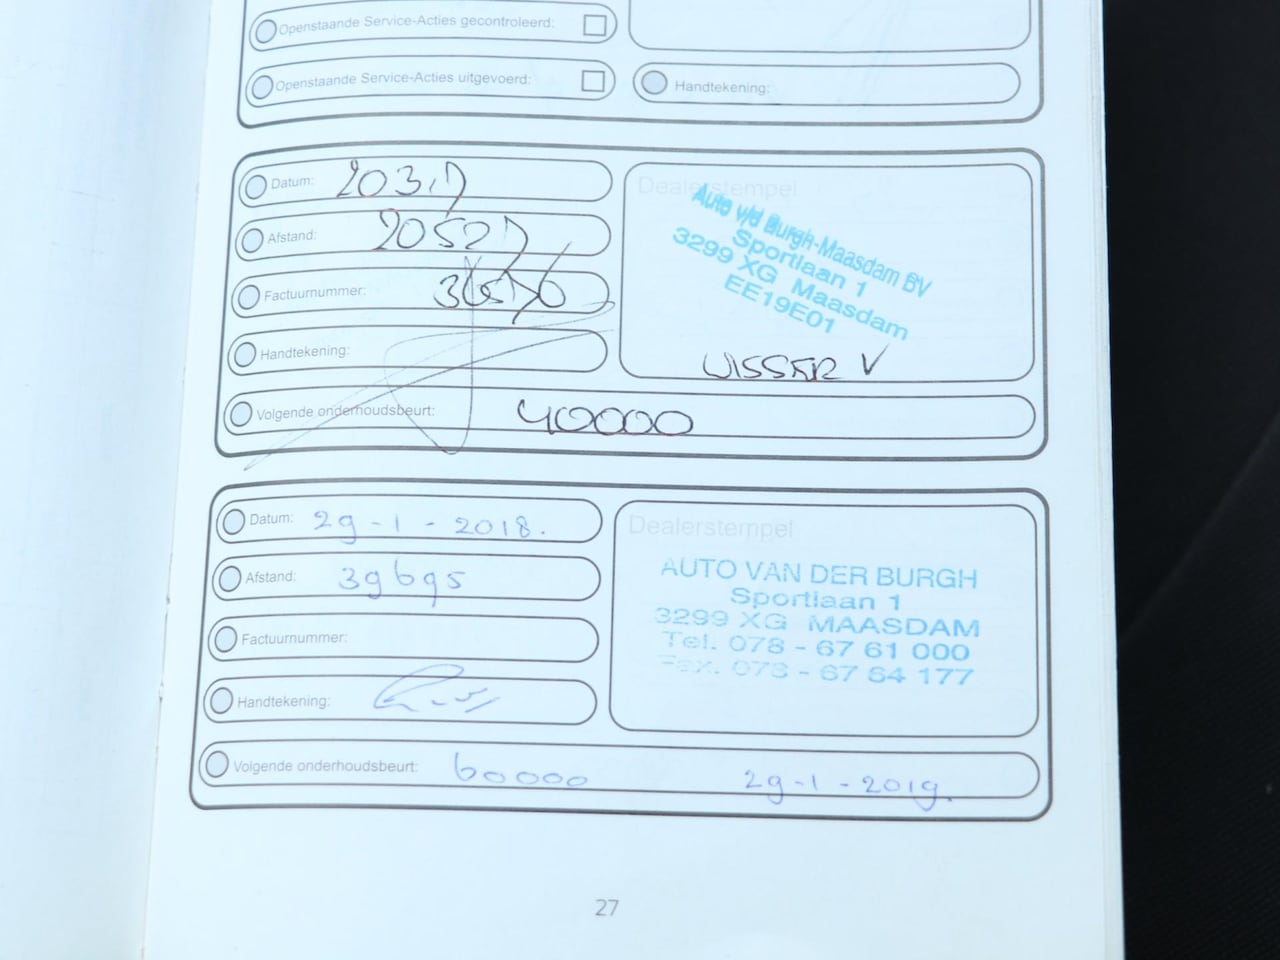 Openstaande Service-Acties gecontroleerd:
Openstaande Service-Acties uitgevoerd:
Handtekening:
Datum:
Dealerstempel
Afstand:
Auto v/d Burgh-Maasdam BV
Sportlaan 1
3299 XG Maasdam
EE19E01
Factuurnummer:
Handtekening:
VISSER V
Volgende onderhoudsbeurt: 40000
Datum: 29-1-2018.
Dealerstempel
Afstand: 39695
AUTO VAN DER BURGH
Sportlaan 1
3299 XG MAASDAM
Tel. 078 - 67 61 000
Fax. 078 - 67 64 177
Factuurnummer:
Handtekening:
Volgende onderhoudsbeurt: 60000 29-1-2019.
27